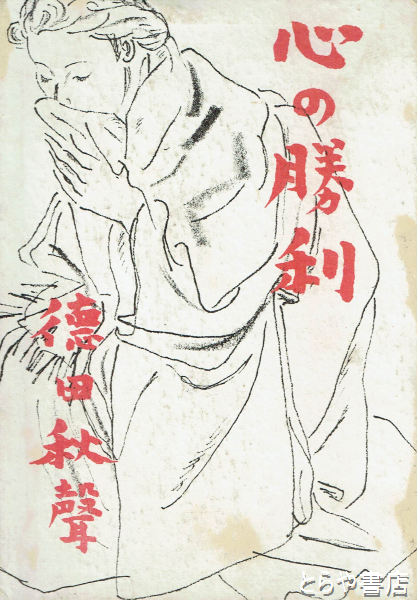 心の勝利
徳田秋聲
とらや書店